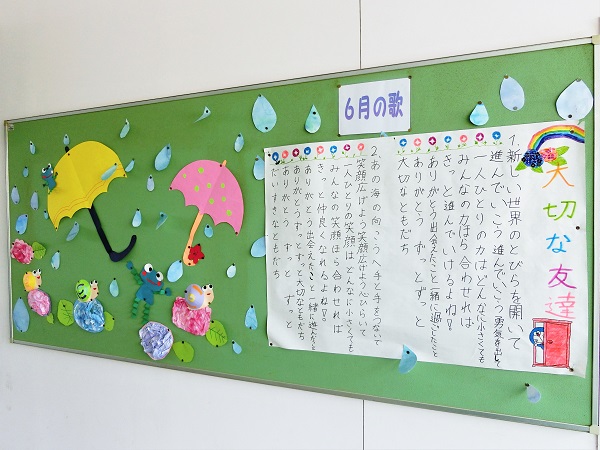 6月の歌
大切な友達
1.新しい世界のとびらを開いて
進んでいこう進んでいこう勇気を出して
一人ひとりの力はどんなに小さくても
みんなの力ほら合わせれば
きっと進んでいけるよね!
ありがとう出会えたこと一緒に過ごたこと
ありがとう ずっと ずっと
大切なともだち
2.あの海の向こうへ手と手をつないで
笑顔広げよう笑顔広げよう心ひらいて
一人ひとりの笑顔はどんなに小さくても
みんなの笑顔ほら合わせれば
きっと仲良くなれるよね!
ありがとう出会えたこと一緒に遊んだこと
ありがとうずっとずっと大切なともだち
ありがとう ずっと ずっと
だいすきなともだち